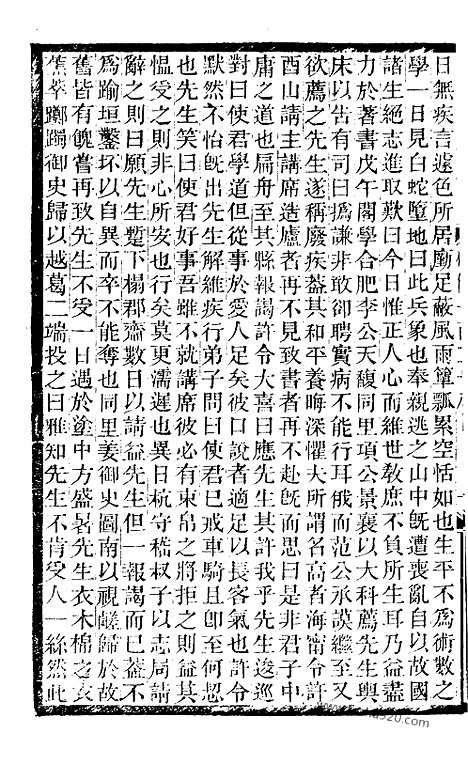 日無疾言遽色所居廟足蔽風雨簞瓢累空恬如也生平不爲術數之
學一日見白蛇墮地曰此兵象也奉親逃之山中旣遭喪亂自以故國
諸生絕志進取歎曰今日惟正人心而維世敎庶不負所生耳乃益盡
力於著書戊午閣學合肥李公天馥同里項公景襄以大科薦先生輿
床以告有司曰爲謙非敢卻聘實病不能行耳俄而范公承謨繼至又
欲薦之先生遂稱廢疾葢其和平養晦深懼夫所謂名高者海甯令許
酉山請主講席造廬者再不見致書者再不赴旣而思曰是非君子中
庸之道也扁舟至其縣報謁許令大喜曰應先生其許我乎先生逡巡
對曰使君學道但從事於愛人足矣彼口說者適足以長客氣也許令
默然不怡旣出先生解維疾行弟子問曰使君已戒車騎且卽至何恝
也先生笑曰使君好事吾雖不就講席彼必有束帛之將拒之則益其
慍受之則非心所安也行矣莫更濡遲也異日杭守嵇叔子以志局請
辭之則曰願先生蹔下榻郡齋數日以請益先生但一報謁而已葢不
爲踰垣鑿坏以自異而卒不能奪也同里姜御史圖南以視鹺歸於故
舊皆有餽嘗再致先生不受一日遇於塗中方盛暑先生衣木棉之衣
蕉萃躑躅御史歸以越葛二端投之曰雅知先生不肯受人一絲然此